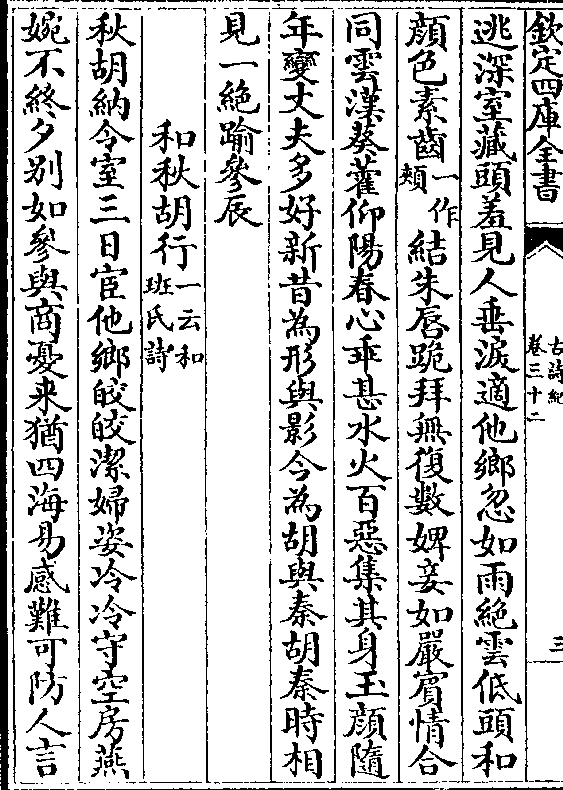 欽定四庫全書
古詩紀
卷三十二
三
逃深室藏頭羞見人垂淚適他鄉忽如雨絶雲低頭和
顔色素齒一作頰結朱唇跪拜無復數婢妾如嚴賓情合
同雲漢葵藿仰陽春心乖甚水火百惡集其身玉顔隨
年變丈夫多好新昔為形與影今為胡與秦胡秦時相
見一絶踰參辰
和秋胡行一云和班氏詩
秋胡納令室三日宦他鄉皎皎潔婦姿冷冷守空房燕
婉不終夕别如參與商憂来猶四海易感難可防人言